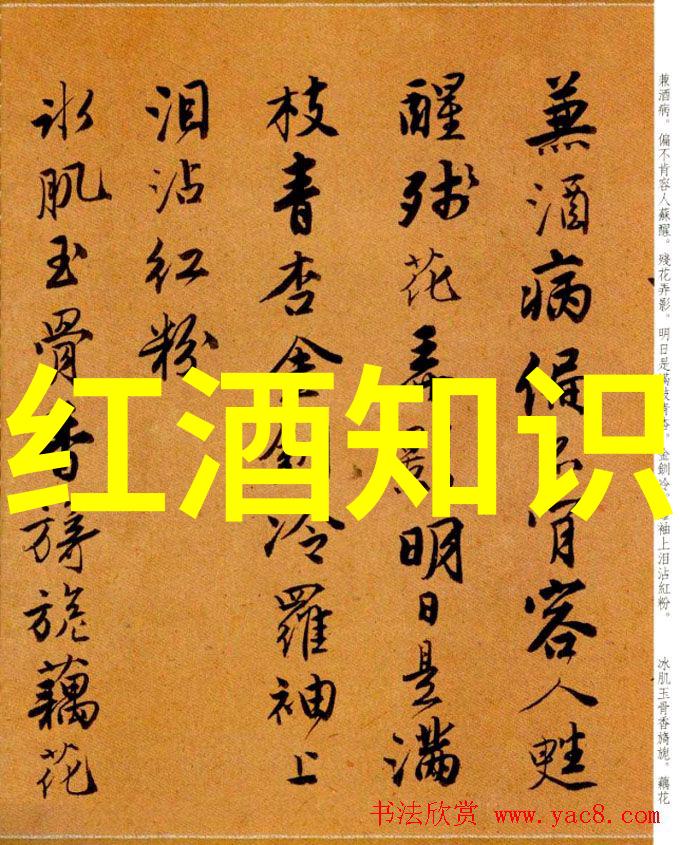 兼酒病。偏不肯容人蘇醒。殘花弄影。明日是滿枝青杏。金釧冷。袖上泪沾紅粉。
冰肌玉骨香旖旎。藕花
兼酒病偏不肯容人甦
醒殘花弄影明日是滿
枝青杏金釧冷羅袖上
泪沾紅粉
冰肌玉骨香旖旎藕花
红酒知识
书法欣赏 www.yac8.com